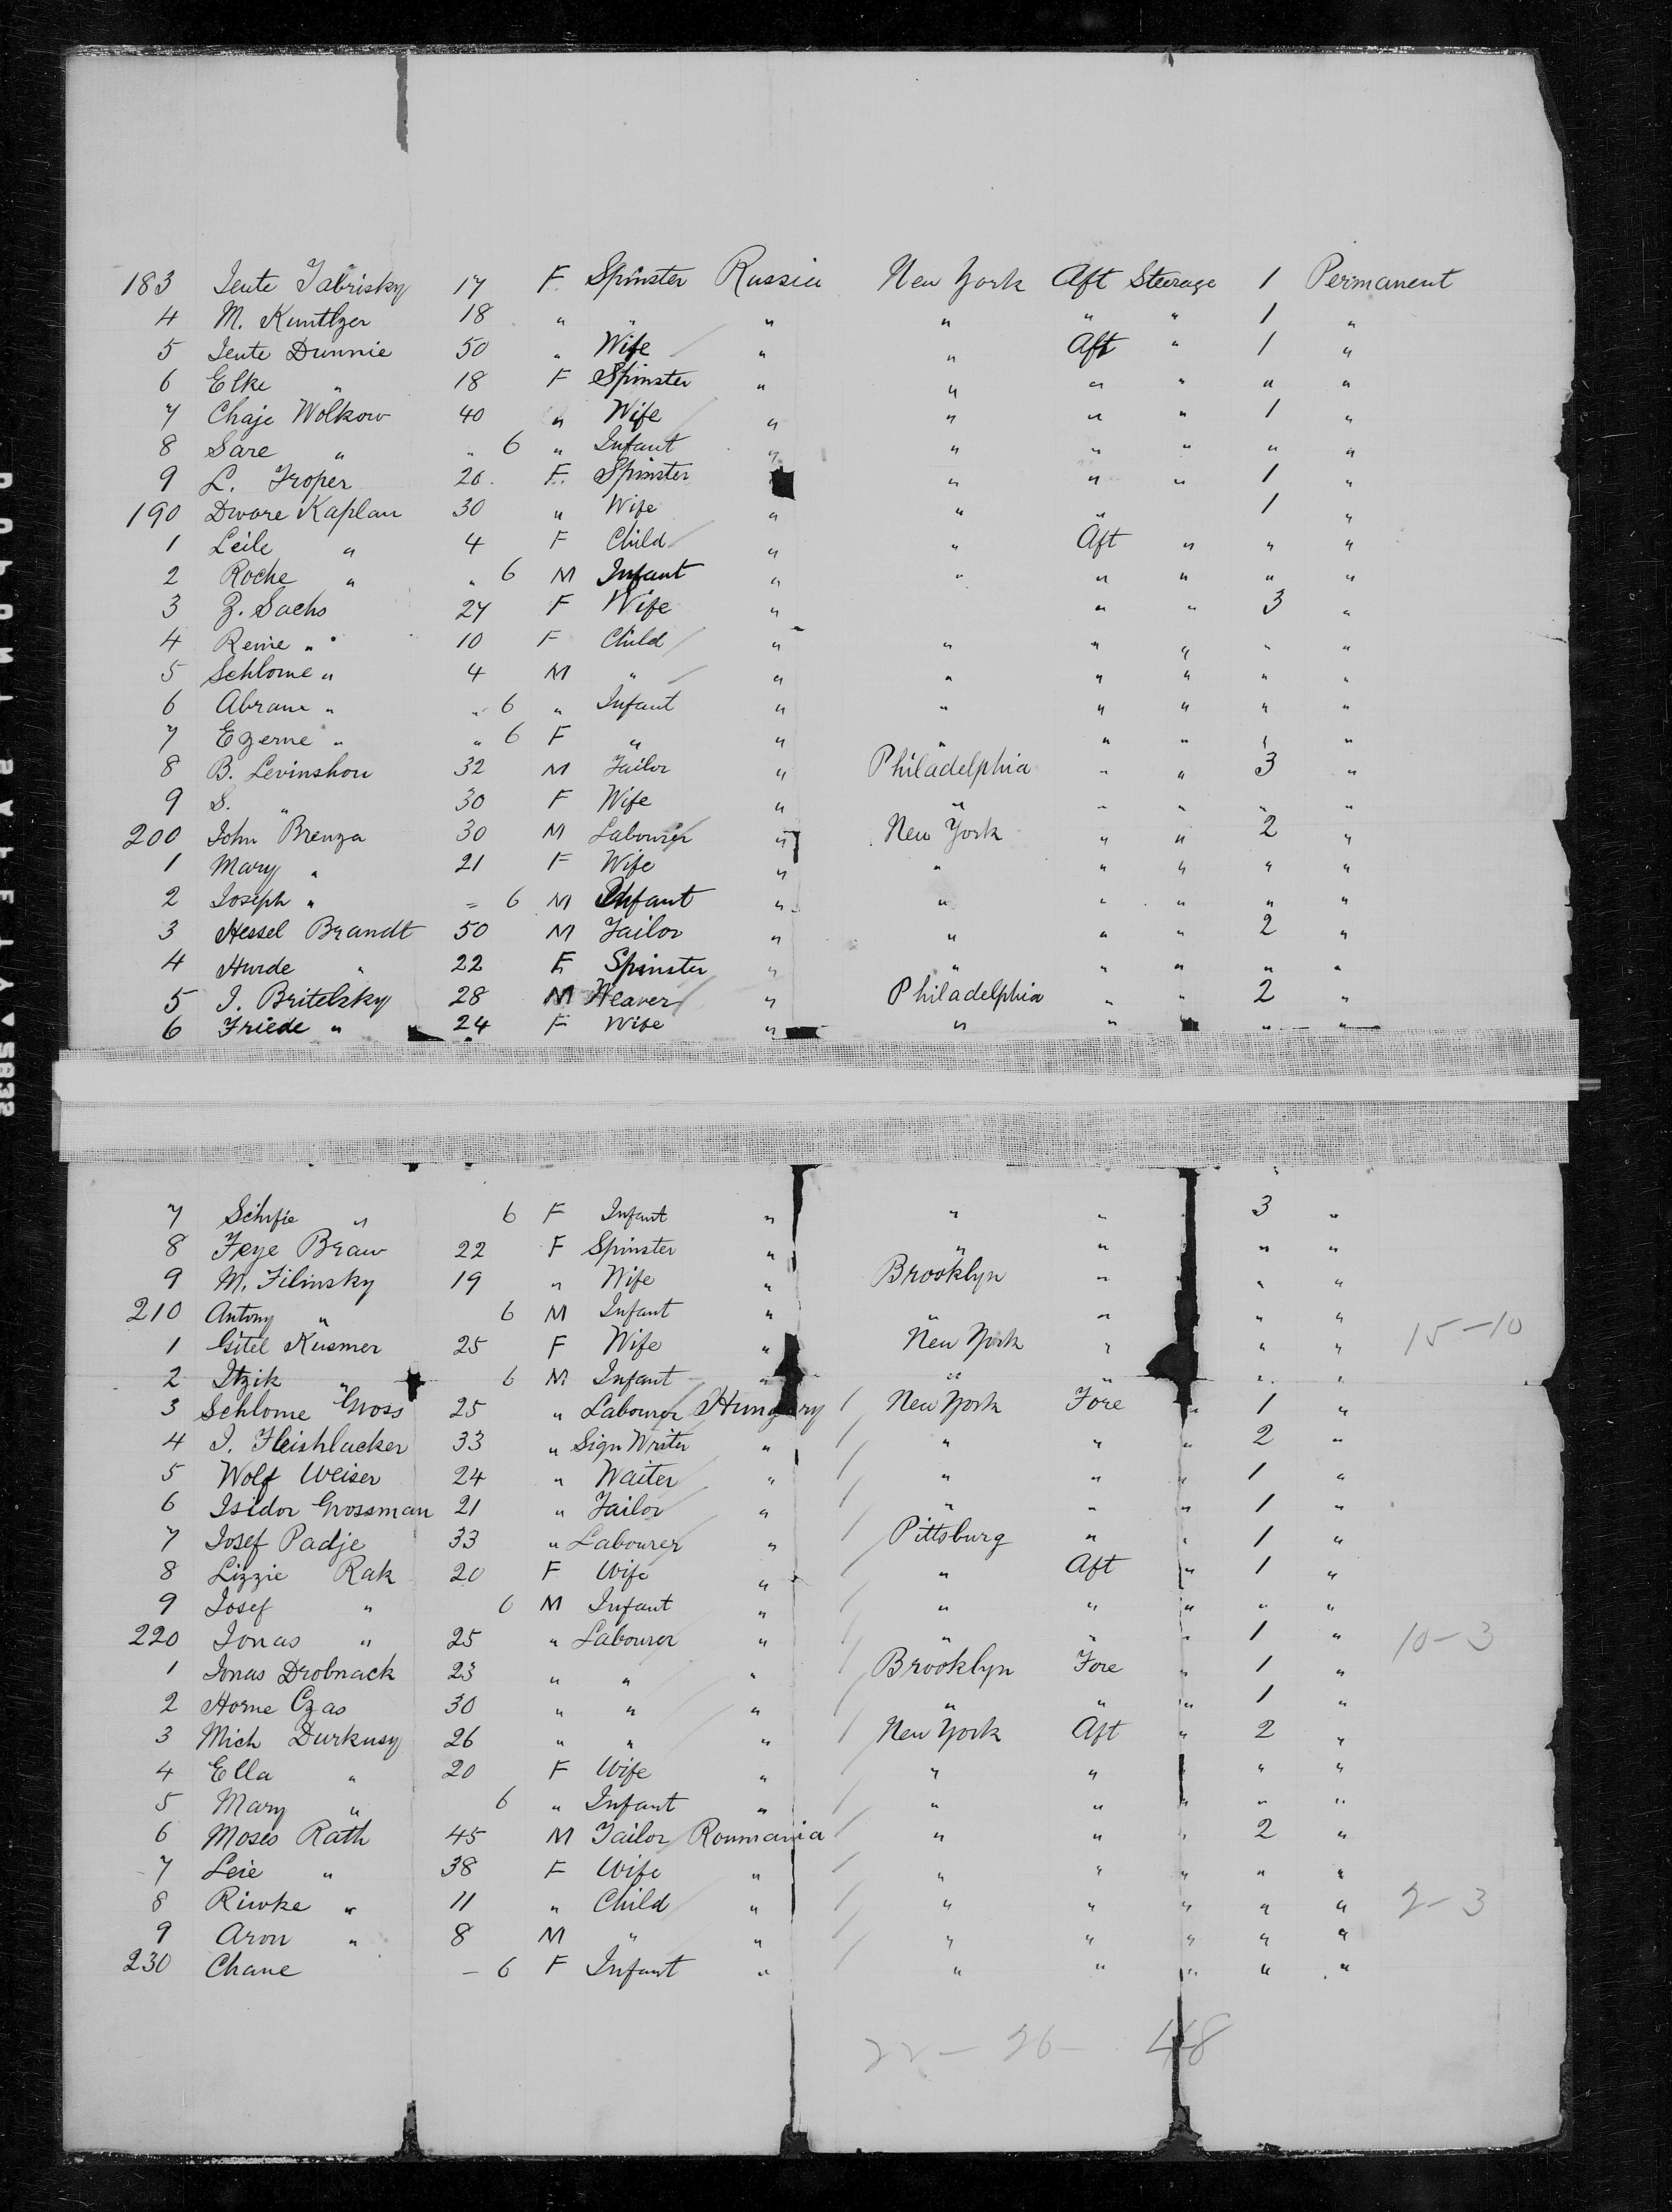 183 Jente Fabrisky 17 F Spinster Russia New York Aft Steerage 1 Permanent
4 M. Kuntlzer 18 " " " " " " 1 "
5 Jente Dunnie 50 " Wife " " Aft " 1 "
6 Elke " 18 F Spinster " " " " " "
7 Chaje Wolkow 40 " Wife " " " " 1 "
8 Sare " " 6 " Infant " " " " " "
9 L. Troper 20. F. Spinster " " " 1 "
190 Dwore Kaplan 30 " Wife " " " 1 "
1 Leile " 4 F Child " " Aft " " "
2 Roche " " 6 M Infant " " " " " "
3 Z. Sachs 27 F Wife " " " 3 "
4 Reine " 10 F Child " " " " " "
5 Schlome " 4 M " " " " " " "
6 Abram " " 6 " Infant " " " " " "
7 Ezerne " " 6 F " " " " " " "
8 B. Levinshon 32 M Tailor " Philadelphia " " 3 "
9 S. " 30 F Wife " " " " " "
200 John Brenza 30 M Labourer " New York " " 2 "
1 Mary " 21 F Wife " " " " " "
2 Joseph " = 6 M Infant " " " " " "
3 Hessel Brandt 50 M Tailor " " " " 2 "
4 Hurde " 22 F Spinster " " " " " "
5 I. Britelsky 28 M Weaver " Philadelphia " " 2 "
6 Friede " 24 F Wife " " " " "
7 Schifie " 6 F Infant " " " 3 "
8 Feye Braw 22 F Spinster " " " " "
9 M. Filinsky 19 " Wife " Brooklyn " " "
210 Antony " 6 M Infant " " " " "
1 Gitel Kusmer 25 F Wife " New York " " " 15-10
2 Itzik " 6 M Infant " " " " "
3 Schlome Gross 25 " Labourer Hungary / New York Fore " 1 "
4 I. Fleishlacker 33 " Sign Writer " / " " " 2 "
5 Wolf Weiser 24 " Waiter " / " " " 1 "
6 Isidor Grossman 21 " Tailor " / " " " 1 "
7 Josef Padje 33 " Labourer " / Pittsburg " " 1 "
8 Lizzie Rak 20 F Wife " / " Aft " 1 "
9 Josef " 6 M Infant " / " " " " "
220 Jonas " 25 " Labourer " / " " " 1 " 10-3
1 Jonas Drobnack 23 " " " / Brooklyn Fore " 1 "
2 Horne Czas 30 " " " / " " " 1 "
3 Mich Durkusy 26 " " " / New York Aft " 2 "
4 Ella " 20 F Wife " / " " " "
5 Mary " 6 " Infant " / " " " " "
6 Moses Rath 45 M Tailor Roumania / " " " 2 "
7 Leie " 38 F Wife " / " " " " "
8 Riwke " 11 " Child " / " " " " " 2-3
9 Aron " 8 M " " / " " " " "
230 Chane - 6 F Infant " / " " " " "
22 - 26 - 48